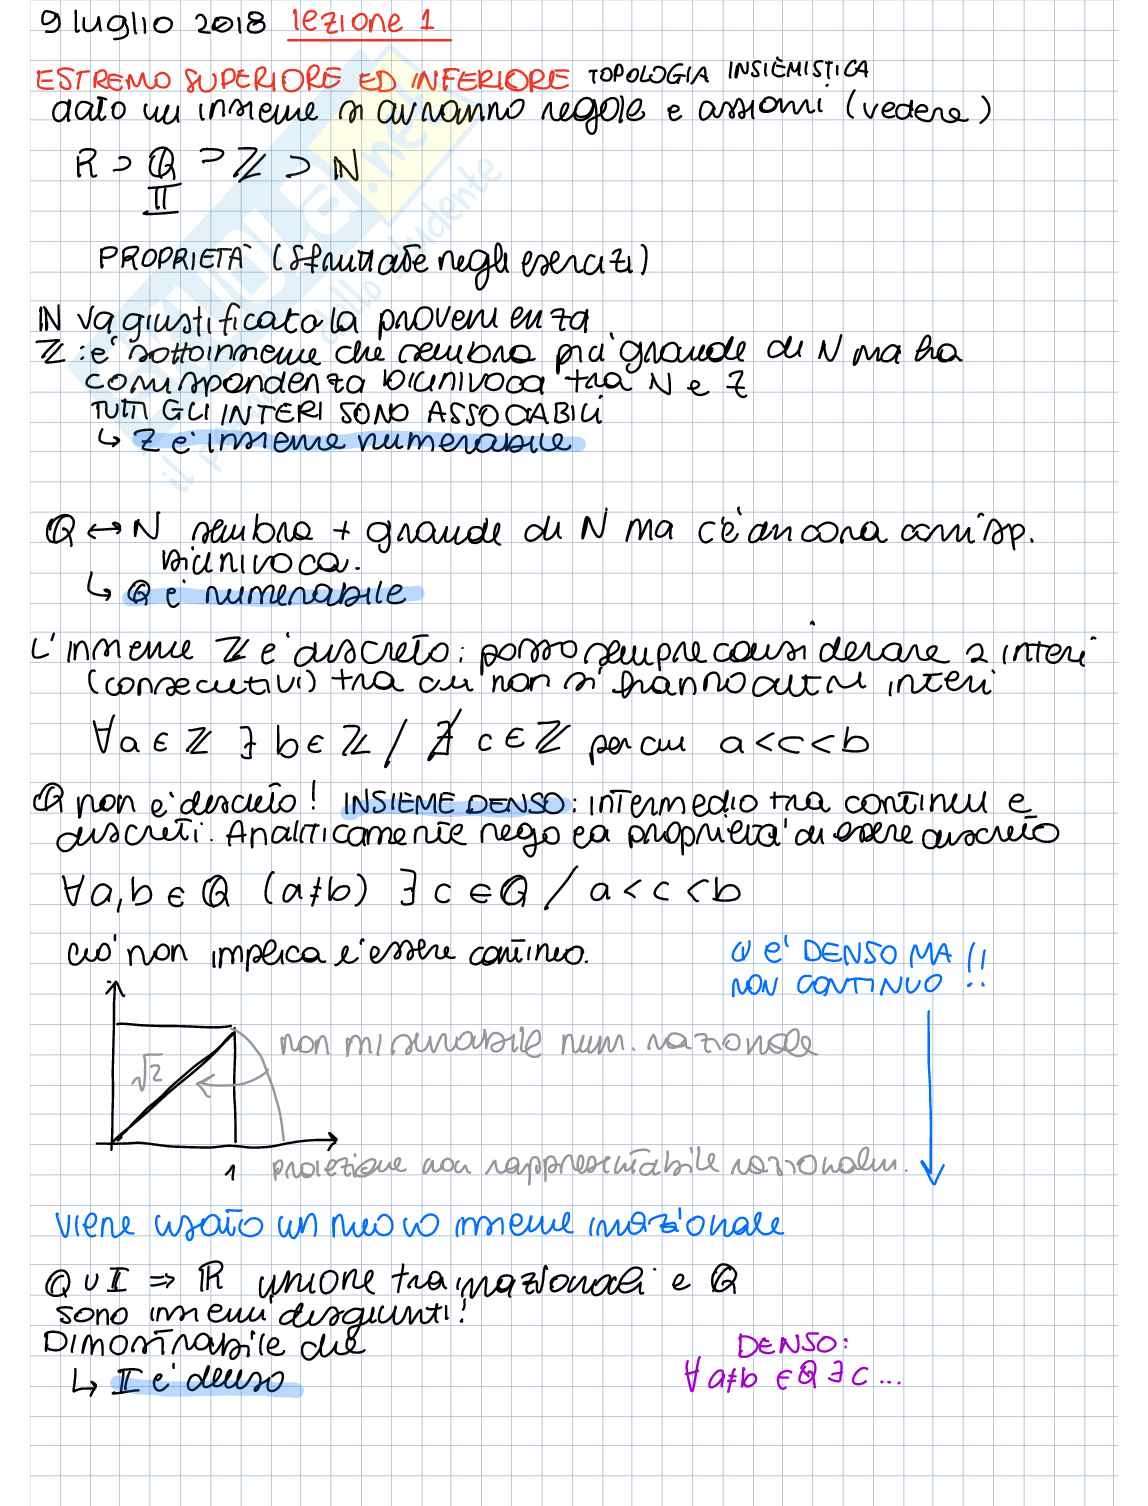 9 luglio 2018 lezione 1
ESTREMO SUPERIORE ED INFERIORE TOPOLOGIA INSIEMISTICA
dato un insieme si avranno regole e assiomi (vedere)
R ⊃ Q ⊃ Z ⊃ N
II
PROPRIETÀ (sfruttate negli esercizi)
N va giustificata la provenienza
Z: è sottoinsieme che sembra più grande di N ma ha
corrispondenza biunivoca tra N e Z
TUTTI GLI INTERI SONO ASSOCIABILI
↳ Z è insieme numerabile
Q ↔ N sembra + grande di N ma c'è ancora corrisp.
biunivoca.
↳ Q è numerabile
L'insieme Z è discreto: posso sempre considerare 2 interi
(consecutivi) tra cui non si hanno altri interi
∀a ∈ Z ∃ b ∈ Z / ∄ c ∈ Z per cui a < c < b
Q non è discreto! INSIEME DENSO: intermedio tra continui e
discreti. Analiticamente nego la proprietà di essere discreto
∀a,b ∈ Q (a≠b) ∃ c ∈ Q / a < c < b
ciò non implica l'essere continuo.
Q È DENSO MA
NON CONTINUO !!
non misurabile num. razionale
√2
1
proiezione non rappresentabile razionalm.
viene usato un nuovo insieme irrazionale
Q ∪ I ⇒ R unione tra irrazionali e Q
sono insiemi disgiunti!
DIMOSTRABILE che
↳ I è denso
DENSO:
∀ a≠b ∈ Q ∃ c ...